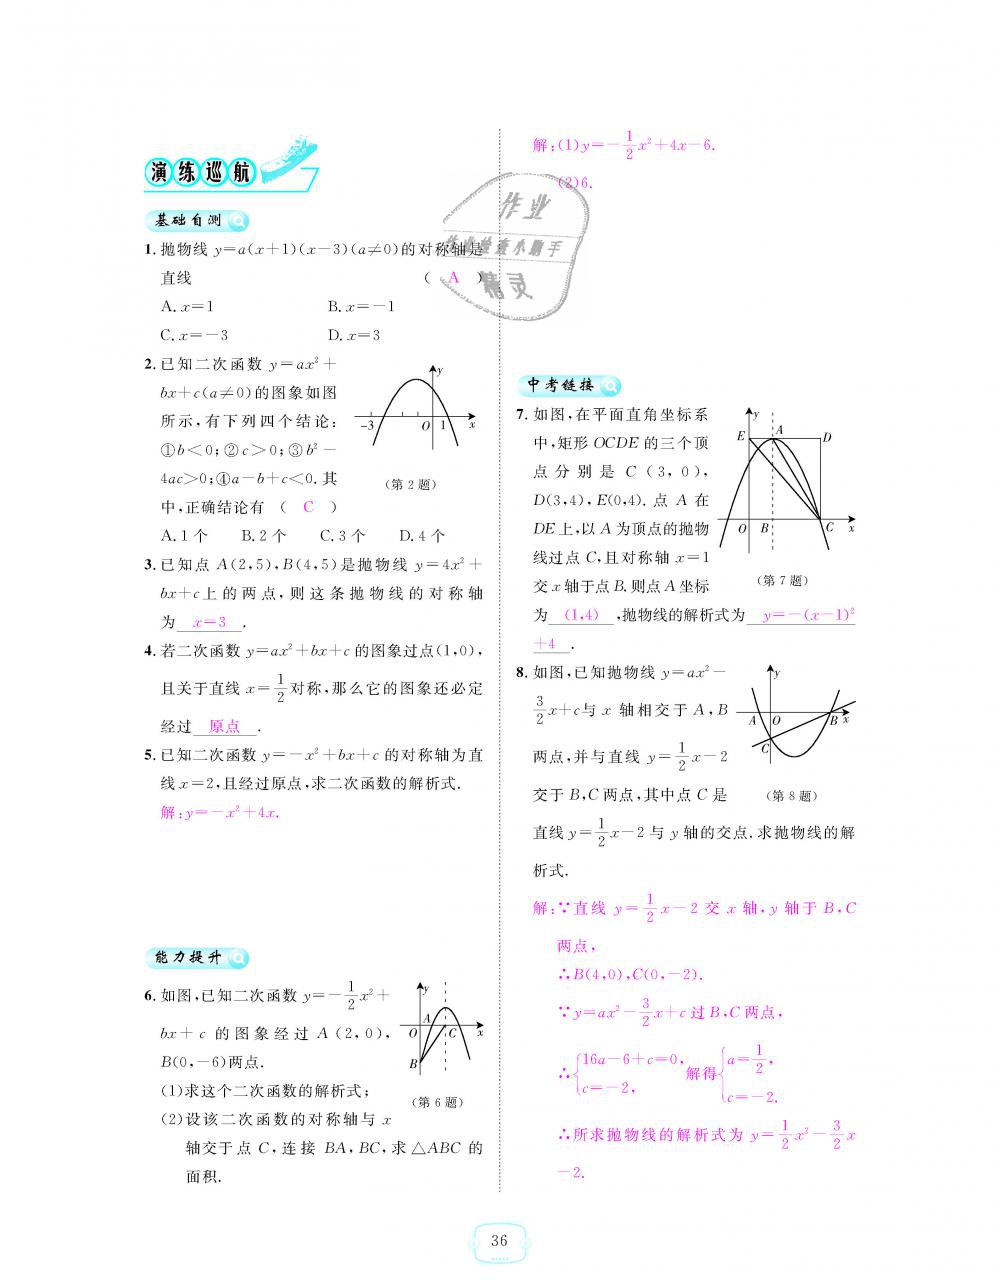 演练巡航
基础自测
1. 抛物线 y=a(x+1)(x-3)(a≠0)的对称轴是
直线 ( A )
A. x=1 B. x=-1
C. x=-3 D. x=3
2. 已知二次函数 y=ax²+
bx+c(a≠0)的图象如图
所示,有下列四个结论:
①b<0;②c>0;③b²-
4ac>0;④a-b+c<0.其
中,正确结论有 ( C )
y
-3 O 1 x
(第2题)
A. 1个 B. 2个 C. 3个 D. 4个
3. 已知点 A(2,5),B(4,5)是抛物线 y=4x²+
bx+c上的两点,则这条抛物线的对称轴
为 x=3 .
4. 若二次函数 y=ax²+bx+c 的图象过点(1,0),
且关于直线 x=1/2对称,那么它的图象还必定
经过 原点 .
5. 已知二次函数 y=-x²+bx+c 的对称轴为直
线 x=2,且经过原点,求二次函数的解析式.
解:y=-x²+4x.
能力提升
6. 如图,已知二次函数 y=-1/2x²+
bx+c 的图象经过 A(2,0),
B(0,-6)两点.
(1)求这个二次函数的解析式;
(2)设该二次函数的对称轴与 x
轴交于点 C,连接 BA,BC,求 △ABC 的
面积.
y
A
O C x
B
(第6题)
解:(1)y=-1/2x²+4x-6.
(2)6.
作业
作业检查小助手
精灵
中考链接
7. 如图,在平面直角坐标系
中,矩形 OCDE 的三个顶
点分别是 C(3,0),
D(3,4),E(0,4).点 A 在
DE上,以 A 为顶点的抛物
线过点 C,且对称轴 x=1
交 x 轴于点 B.则点 A 坐标
为 (1,4) ,抛物线的解析式为 y=-(x-1)²
+4 .
y
E A D
O B C x
(第7题)
8. 如图,已知抛物线 y=ax²-
3/2x+c与 x 轴相交于 A,B
两点,并与直线 y=1/2x-2
交于 B,C 两点,其中点 C 是
直线 y=1/2x-2 与 y 轴的交点.求抛物线的解
析式.
y
A O B x
C
(第8题)
解:∵直线 y=1/2x-2 交 x 轴,y 轴于 B,C
两点,
∴B(4,0),C(0,-2).
∵y=ax²-3/2x+c 过 B,C 两点,
∴{16a-6+c=0, c=-2, 解得{a=1/2, c=-2.
∴所求抛物线的解析式为 y=1/2x²-3/2x
-2.
36